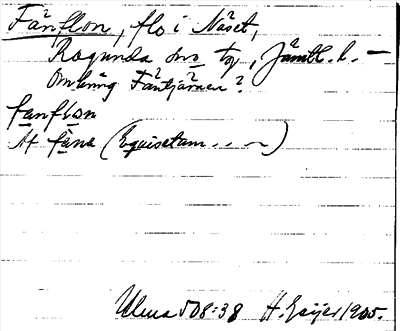 Fånflon, flo i Näset,
Ragunda sn o tg, Jämtl. l. —
Omkring Fåntjärnen?
fanflon
Af fåna (Equisetum . . ~)
Ulma 508:38 H. Geijer 1905.